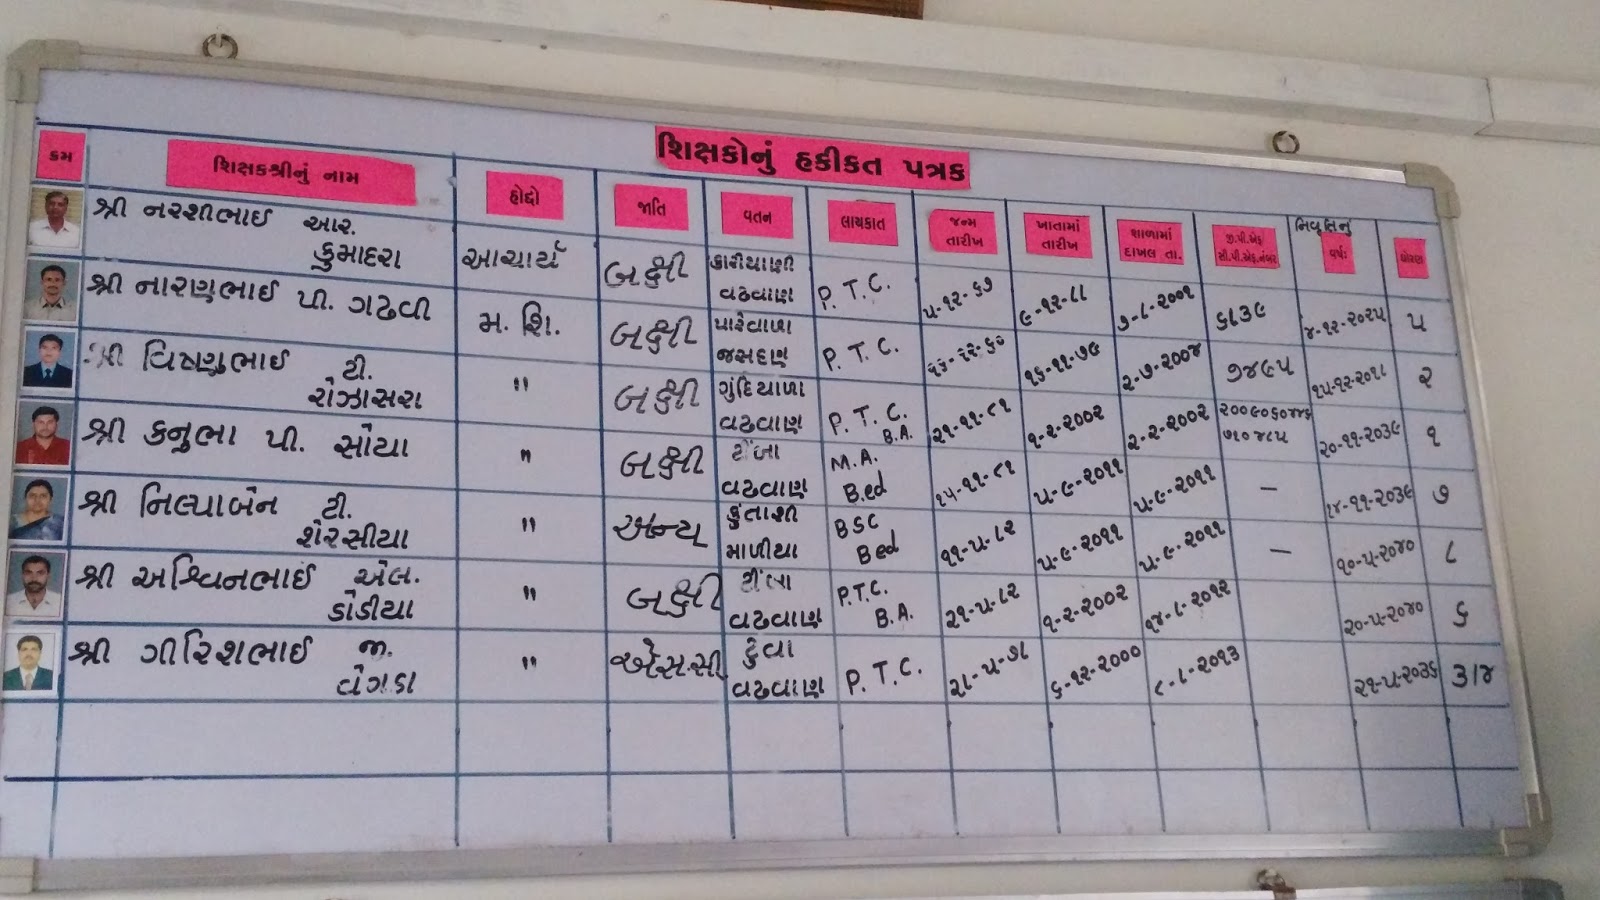 શિક્ષકોનું હકીકત પત્રક
ક્રમ શિક્ષકશ્રીનું નામ હોદ્દો જાતિ વતન લાયકાત જન્મ તારીખ ખાતામાં તારીખ શાળામાં દાખલ તા. જી.પી.એફ/ સી.પી.એફ.નંબર નિવૃત્તિનું વર્ષઃ ધોરણ
શ્રી નરશીભાઈ આર. કુમાદરા આચાર્ય બક્ષી કારીયાણી વઢવાણ P.T.C. ૫-૧૨-૬૭ ૯-૧૨-૮૮ ૭-૮-૨૦૦૧ ૬૮૩૯ ૪-૧૨-૨૦૨૫ ૫
શ્રી નારણભાઈ પી. ગઢવી મ. શિ. બક્ષી પારેવાળા જસદણ P.T.C. ૧૬-૧૧-૭૯ ૨-૭-૨૦૦૪ ૭૪૯૫ ૧૫-૧૨-૨૦૧૮ ૨
શ્રી વિષ્ણુભાઈ ટી. રોઝાસરા " બક્ષી ગુંદિયાળા વઢવાણ P.T.C. B.A. ૨૧-૧૧-૮૧ ૧-૨-૨૦૦૨ ૨-૨-૨૦૦૨ ૨૦-૧૧-૨૦૩૯ ૧
શ્રી કનુભા પી. સોયા " બક્ષી ટીંબા વઢવાણ M.A. B.ed ૧૫-૧૧-૮૧ ૫-૯-૨૦૧૧ ૫-૯-૨૦૧૧ — ૧૪-૧૧-૨૦૩૯ ૭
શ્રી નિલ્પાબેન ટી. શેરસીયા " અન્ય કુંતાશી માળીયા BSC Bed ૧૧-૫-૮૨ ૫-૯-૨૦૧૧ ૫-૯-૨૦૧૧ — ૧૦-૫-૨૦૪૦ ૮
શ્રી અશ્વિનભાઈ એલ. કોડીયા " બક્ષી ટીંબા વઢવાણ P.T.C. B.A. ૨૧-૫-૮૨ ૧-૨-૨૦૦૨ ૧૪-૮-૨૦૧૨ ૨૦-૫-૨૦૪૦ ૬
શ્રી ગીરિશભાઈ જી. વેગડા " એસ.સી ટુવા વઢવાણ P.T.C. ૨૮-૫-૭૮ ૬-૧૨-૨૦૦૦ ૮-૮-૨૦૧૩ ૨૧-૫-૨૦૩૬ ૩/૪